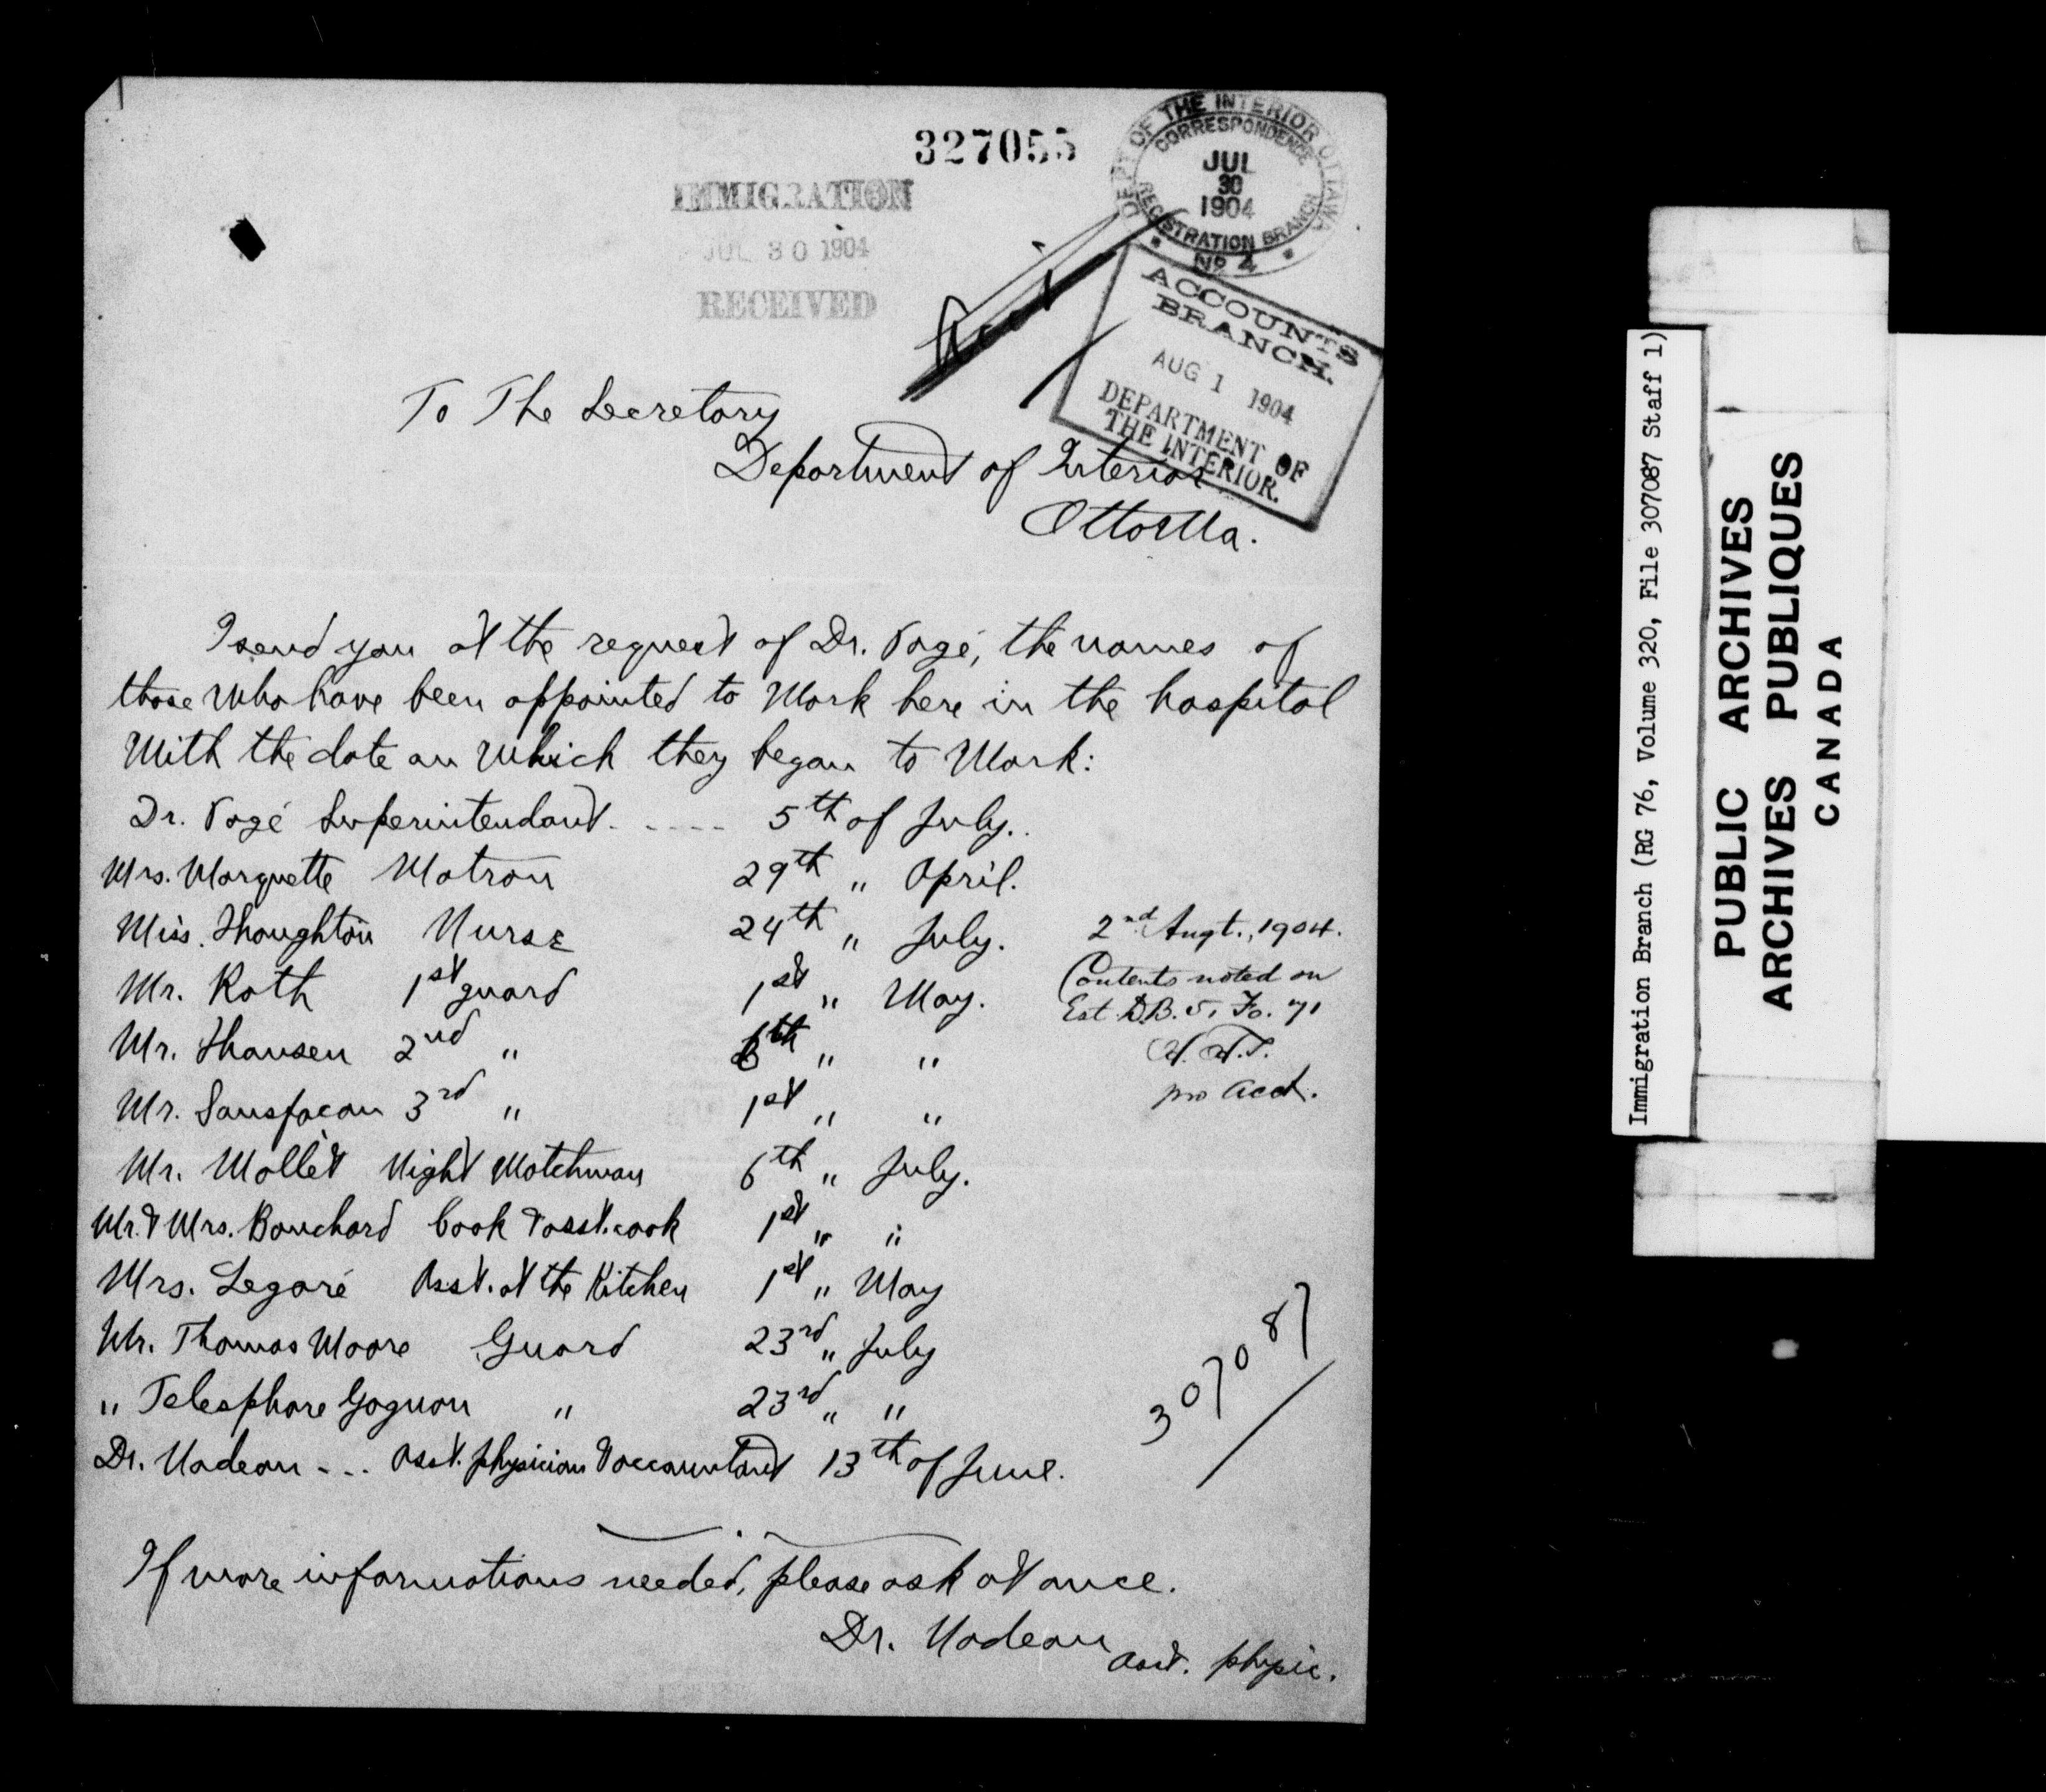 327055
DEPT OF THE INTERIOR OTTAWA
CORRESPONDENCE
JUL
30
1904
REGISTRATION BRANCH
No 4
IMMIGRATION
JUL 30 1904
RECEIVED
ACCOUNTS
BRANCH.
AUG 1 1904
DEPARTMENT OF
THE INTERIOR.
To The Secretary
Department of Interior
Ottowa.
I send you at the request of Dr. Pagé, the names of
those who have been appointed to Work here in the hospital
With the date on which they began to Work:
Dr. Pagé Superintendant. - - - - 5th of July.
Mrs. Marquette Matron 29th " April.
Miss. Thoughton Nurse 24th " July.
Mr. Roth 1st guard 1st " May.
Mr. Thansen 2nd " 6th " "
Mr. Sansfacan 3rd " 1st " "
Mr. Mollet Night Watchman 6th " July.
Mr. & Mrs. Bouchard Cook & asst. cook 1st " "
Mrs. Legaré Asst. at the Kitchen 1st " May
Mr. Thomas Moore Guard 23rd " July
" Telesphore Gagnon " 23rd " "
Dr. Nadeau - - - asst. physician & accountant 13th of June.
2nd Augt., 1904.
Contents noted on
Est. D.B. 5, Fo. 71
pro Acct.
307087
If more informations needed, please ask at once.
Dr. Nadeau
asst. physic.
Immigration Branch (RG 76, Volume 320, File 307087 Staff 1)
PUBLIC ARCHIVES
ARCHIVES PUBLIQUES
CANADA